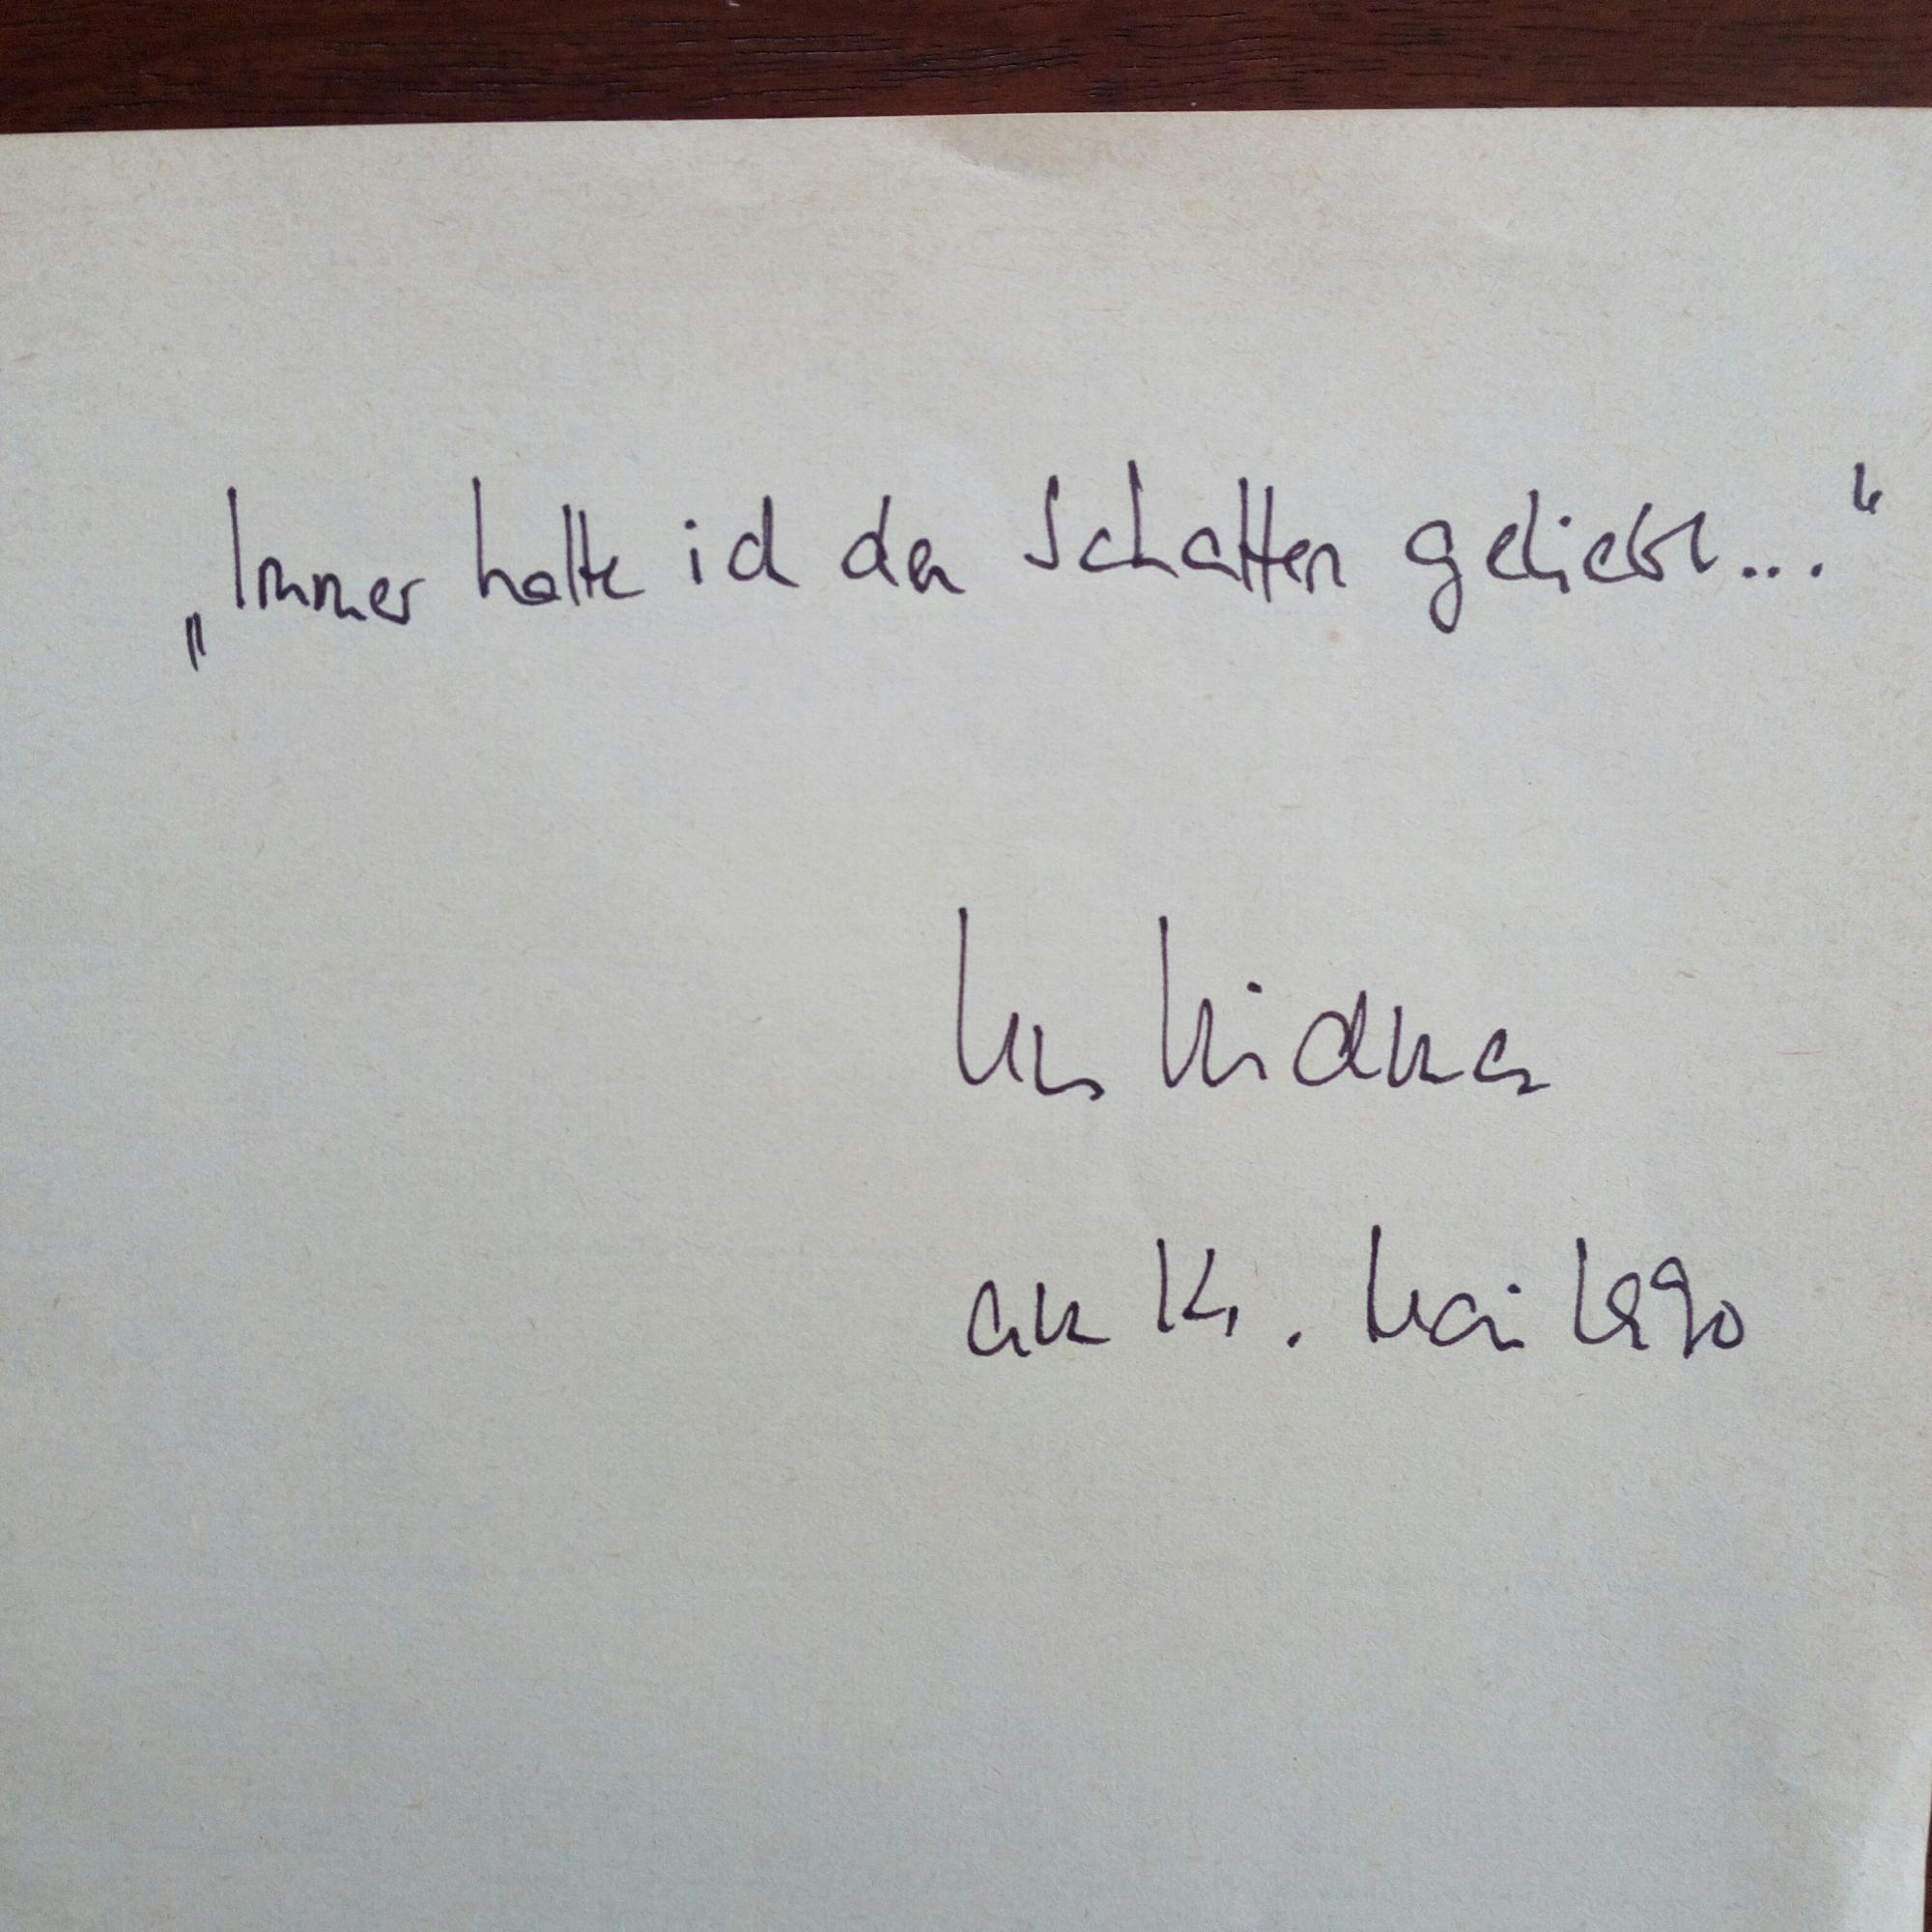 „Immer hatte ich den Schatten geliebt..."
Urs Widmer
am 14. Mai 1990